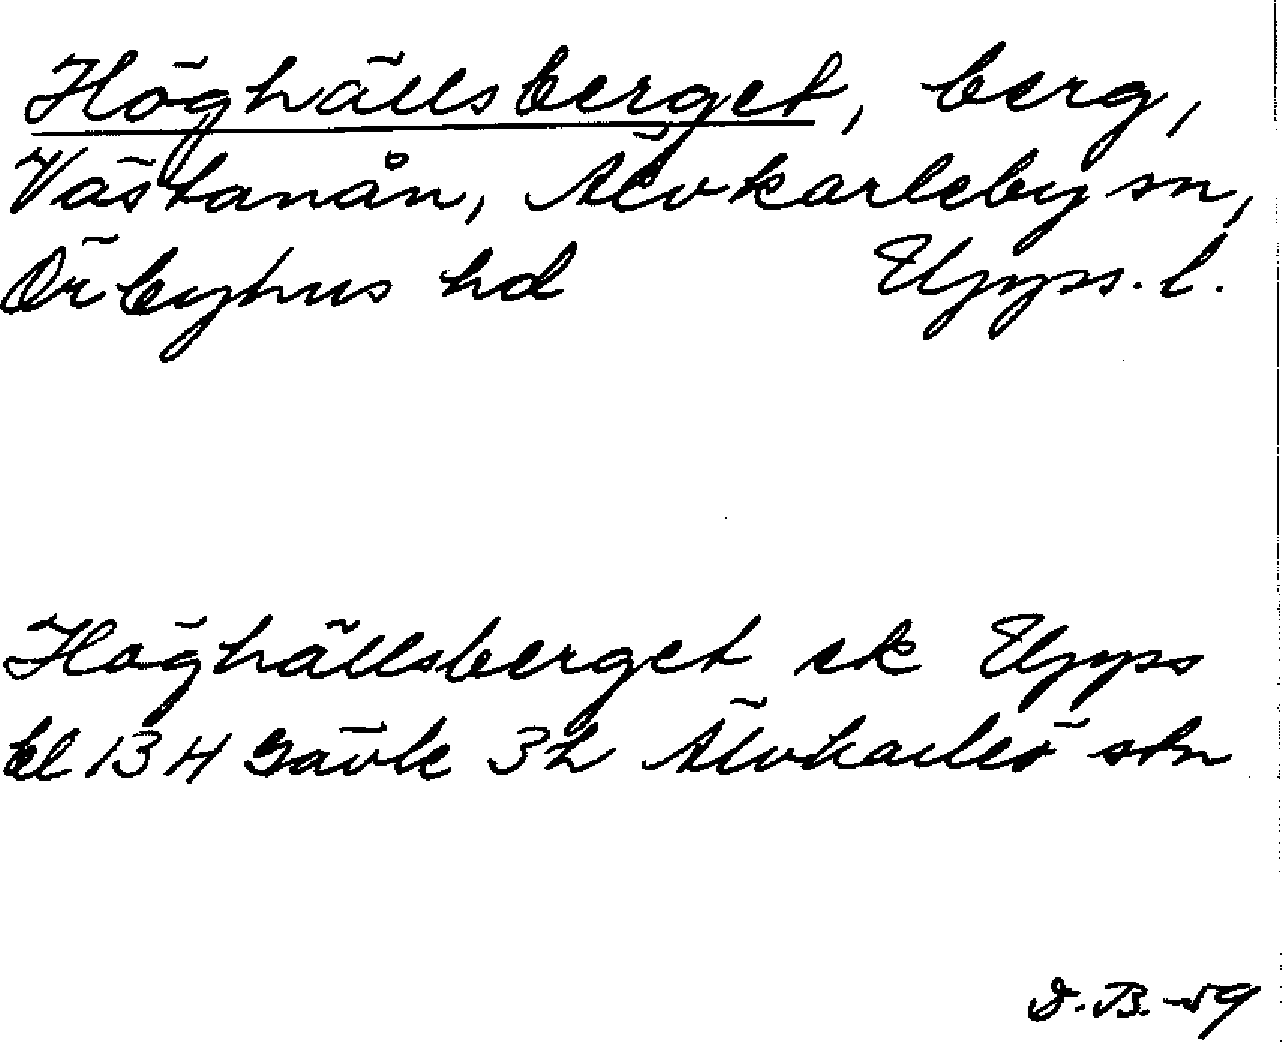 Höghällsberget, berg,
Västanån, Älvkarleby sn,
Örbyhus hd Upps. l.
Höghällsberget ek Upps
bl 13 H Gävle 3h Älvkarleö stn
J.B. -59